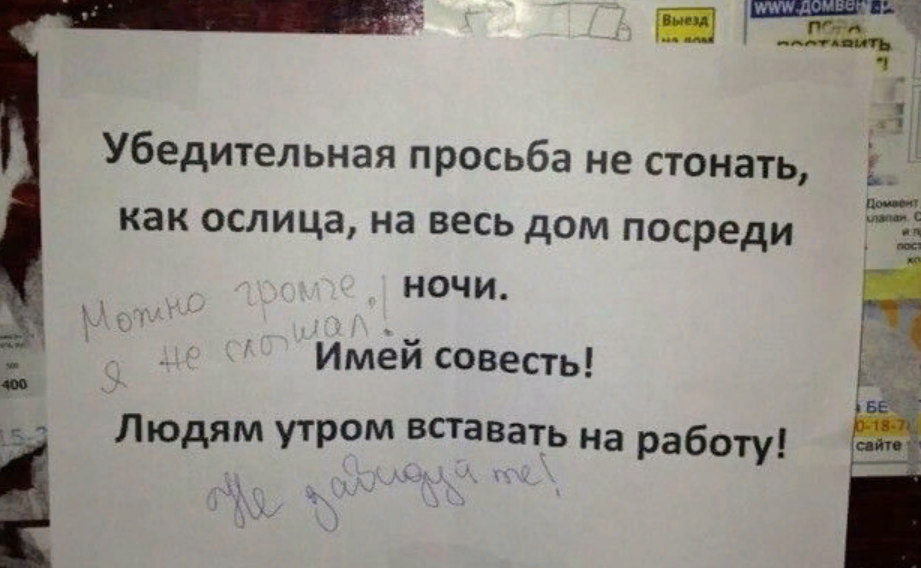 www.домвент.р
Выезд
на дом
ПОРА
ПОСТАВИТЬ
Убедительная просьба не стонать,
как ослица, на весь дом посреди
ночи.
Можно громче,
я не слышал!
Имей совесть!
Людям утром вставать на работу!
Не завидуйте!
400
Домвент
клапан
БЕ
0-18-7
сайте